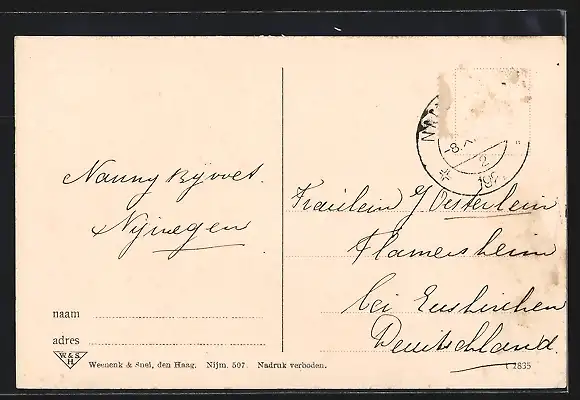 Nanny Bijvoet.
Nijmegen
naam
adres
W & S
H
Weenenk & Snel, den Haag. Nijm. 507. Nadruk verboden.
-8.X
2
Fräulein G. Oesterlein
Flamersheim
bei Euskirchen
Deutschland.
t 2835